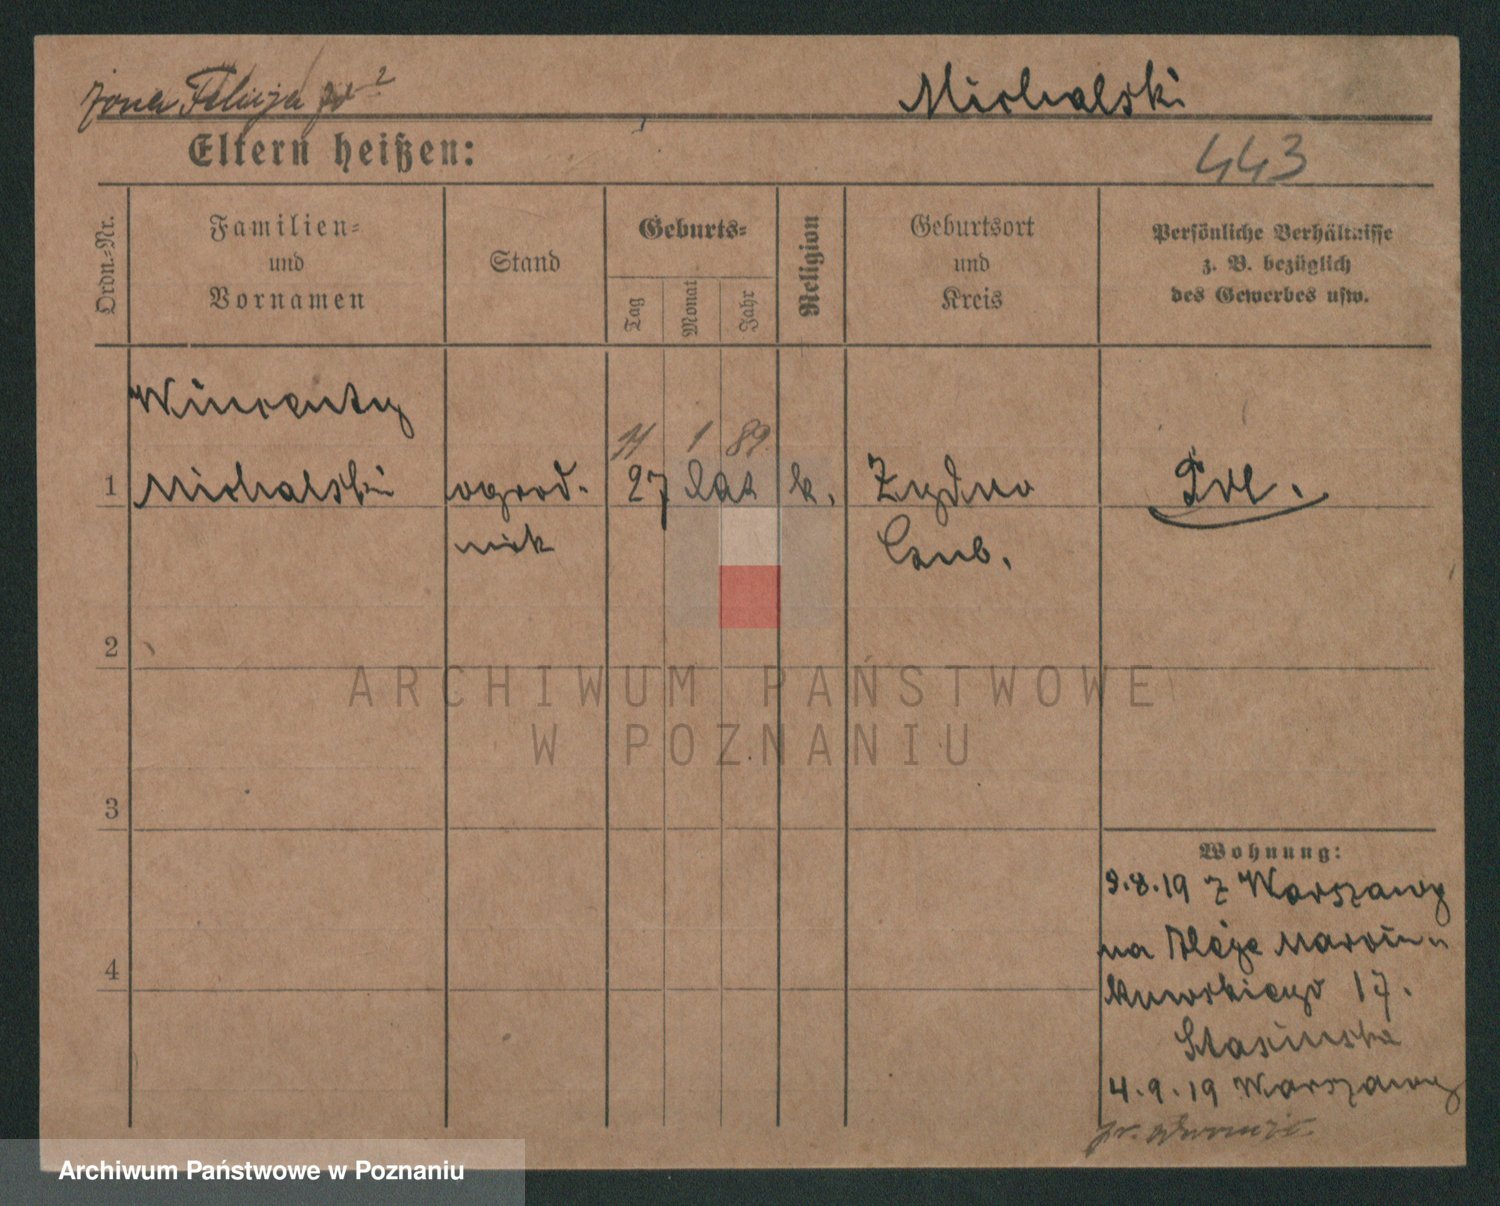 żona Felicja
Michalski
443
Eltern heißen:
Ordn.-Nr.
Familien-
und
Vornamen
Stand
Geburts-
Tag
Monat
Jahr
Religion
Geburtsort
und
Kreis
Persönliche Verhältnisse
z. B. bezüglich
des Gewerbes usw.
Wincenty
1 89
1 Michalski ogrod- 27 lat k. Żydowo
nik
2
3
4
Wohnung:
9.8.19 z Warszawy
na Aleje Marcin-
kowskiego 17.
Stasińska
4.9.19 Warszawy
ARCHIWUM PAŃSTWOWE
W POZNANIU
Archiwum Państwowe w Poznaniu